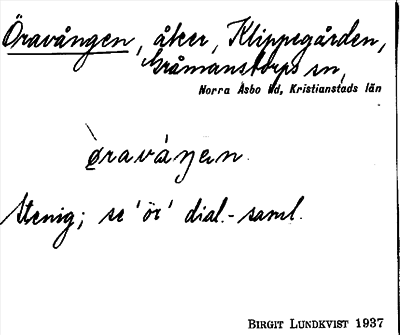 Öravången, åker, Klippegården,
Gråmanstorps sn,
Norra Åsbo hd, Kristianstads län
øraváŋen.
Stenig; se 'ör' dial.-saml.
BIRGIT LUNDKVIST 1937